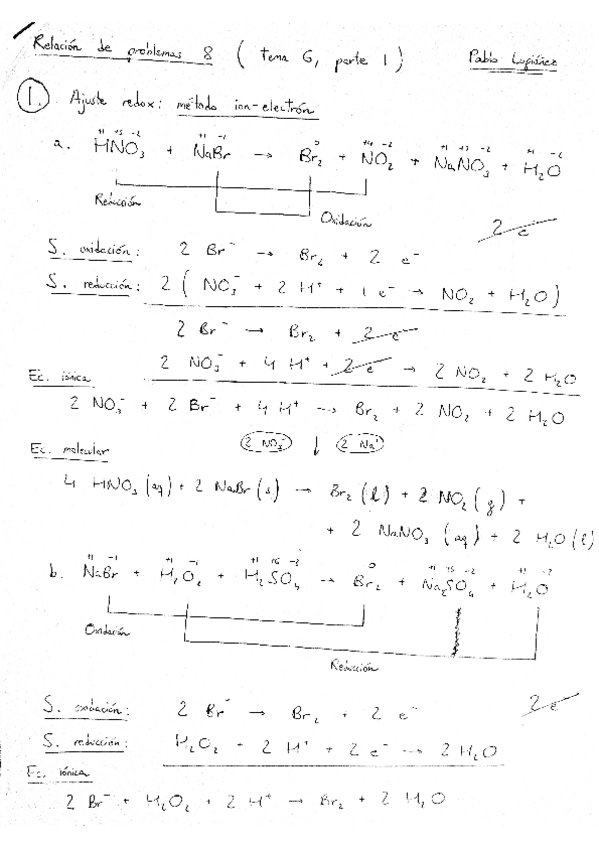 Relación de problemas 8 ( tema 6, parte 1 ) Pablo Lupiáñez
1. Ajuste redox: método ion-electrón
+1 +5 -2 +1 -1 0 +4 -2 +1 +5 -2 +1 -2
a. HNO₃ + NaBr → Br₂ + NO₂ + NaNO₃ + H₂O
Reducción
Oxidación
2 e⁻
S. oxidación: 2 Br⁻ → Br₂ + 2 e⁻
S. reducción: 2 ( NO₃⁻ + 2 H⁺ + 1 e⁻ → NO₂ + H₂O )
2 Br⁻ → Br₂ + 2 e⁻
2 NO₃⁻ + 4 H⁺ + 2 e⁻ → 2 NO₂ + 2 H₂O
Ec. iónica
2 NO₃⁻ + 2 Br⁻ + 4 H⁺ → Br₂ + 2 NO₂ + 2 H₂O
2 NO₃⁻ ↓ 2 Na⁺
Ec. molecular
4 HNO₃ (aq) + 2 NaBr (s) → Br₂ (l) + 2 NO₂ (g) +
+ 2 NaNO₃ (aq) + 2 H₂O (l)
+1 -1 +1 -1 +1 +6 -2 0 +1 +6 -2 +1 -2
b. NaBr + H₂O₂ + H₂SO₄ → Br₂ + Na₂SO₄ + H₂O
Oxidación
Reducción
S. oxidación: 2 Br⁻ → Br₂ + 2 e⁻ 2 e⁻
S. reducción: H₂O₂ + 2 H⁺ + 2 e⁻ → 2 H₂O
Ec. iónica
2 Br⁻ + H₂O₂ + 2 H⁺ → Br₂ + 2 H₂O